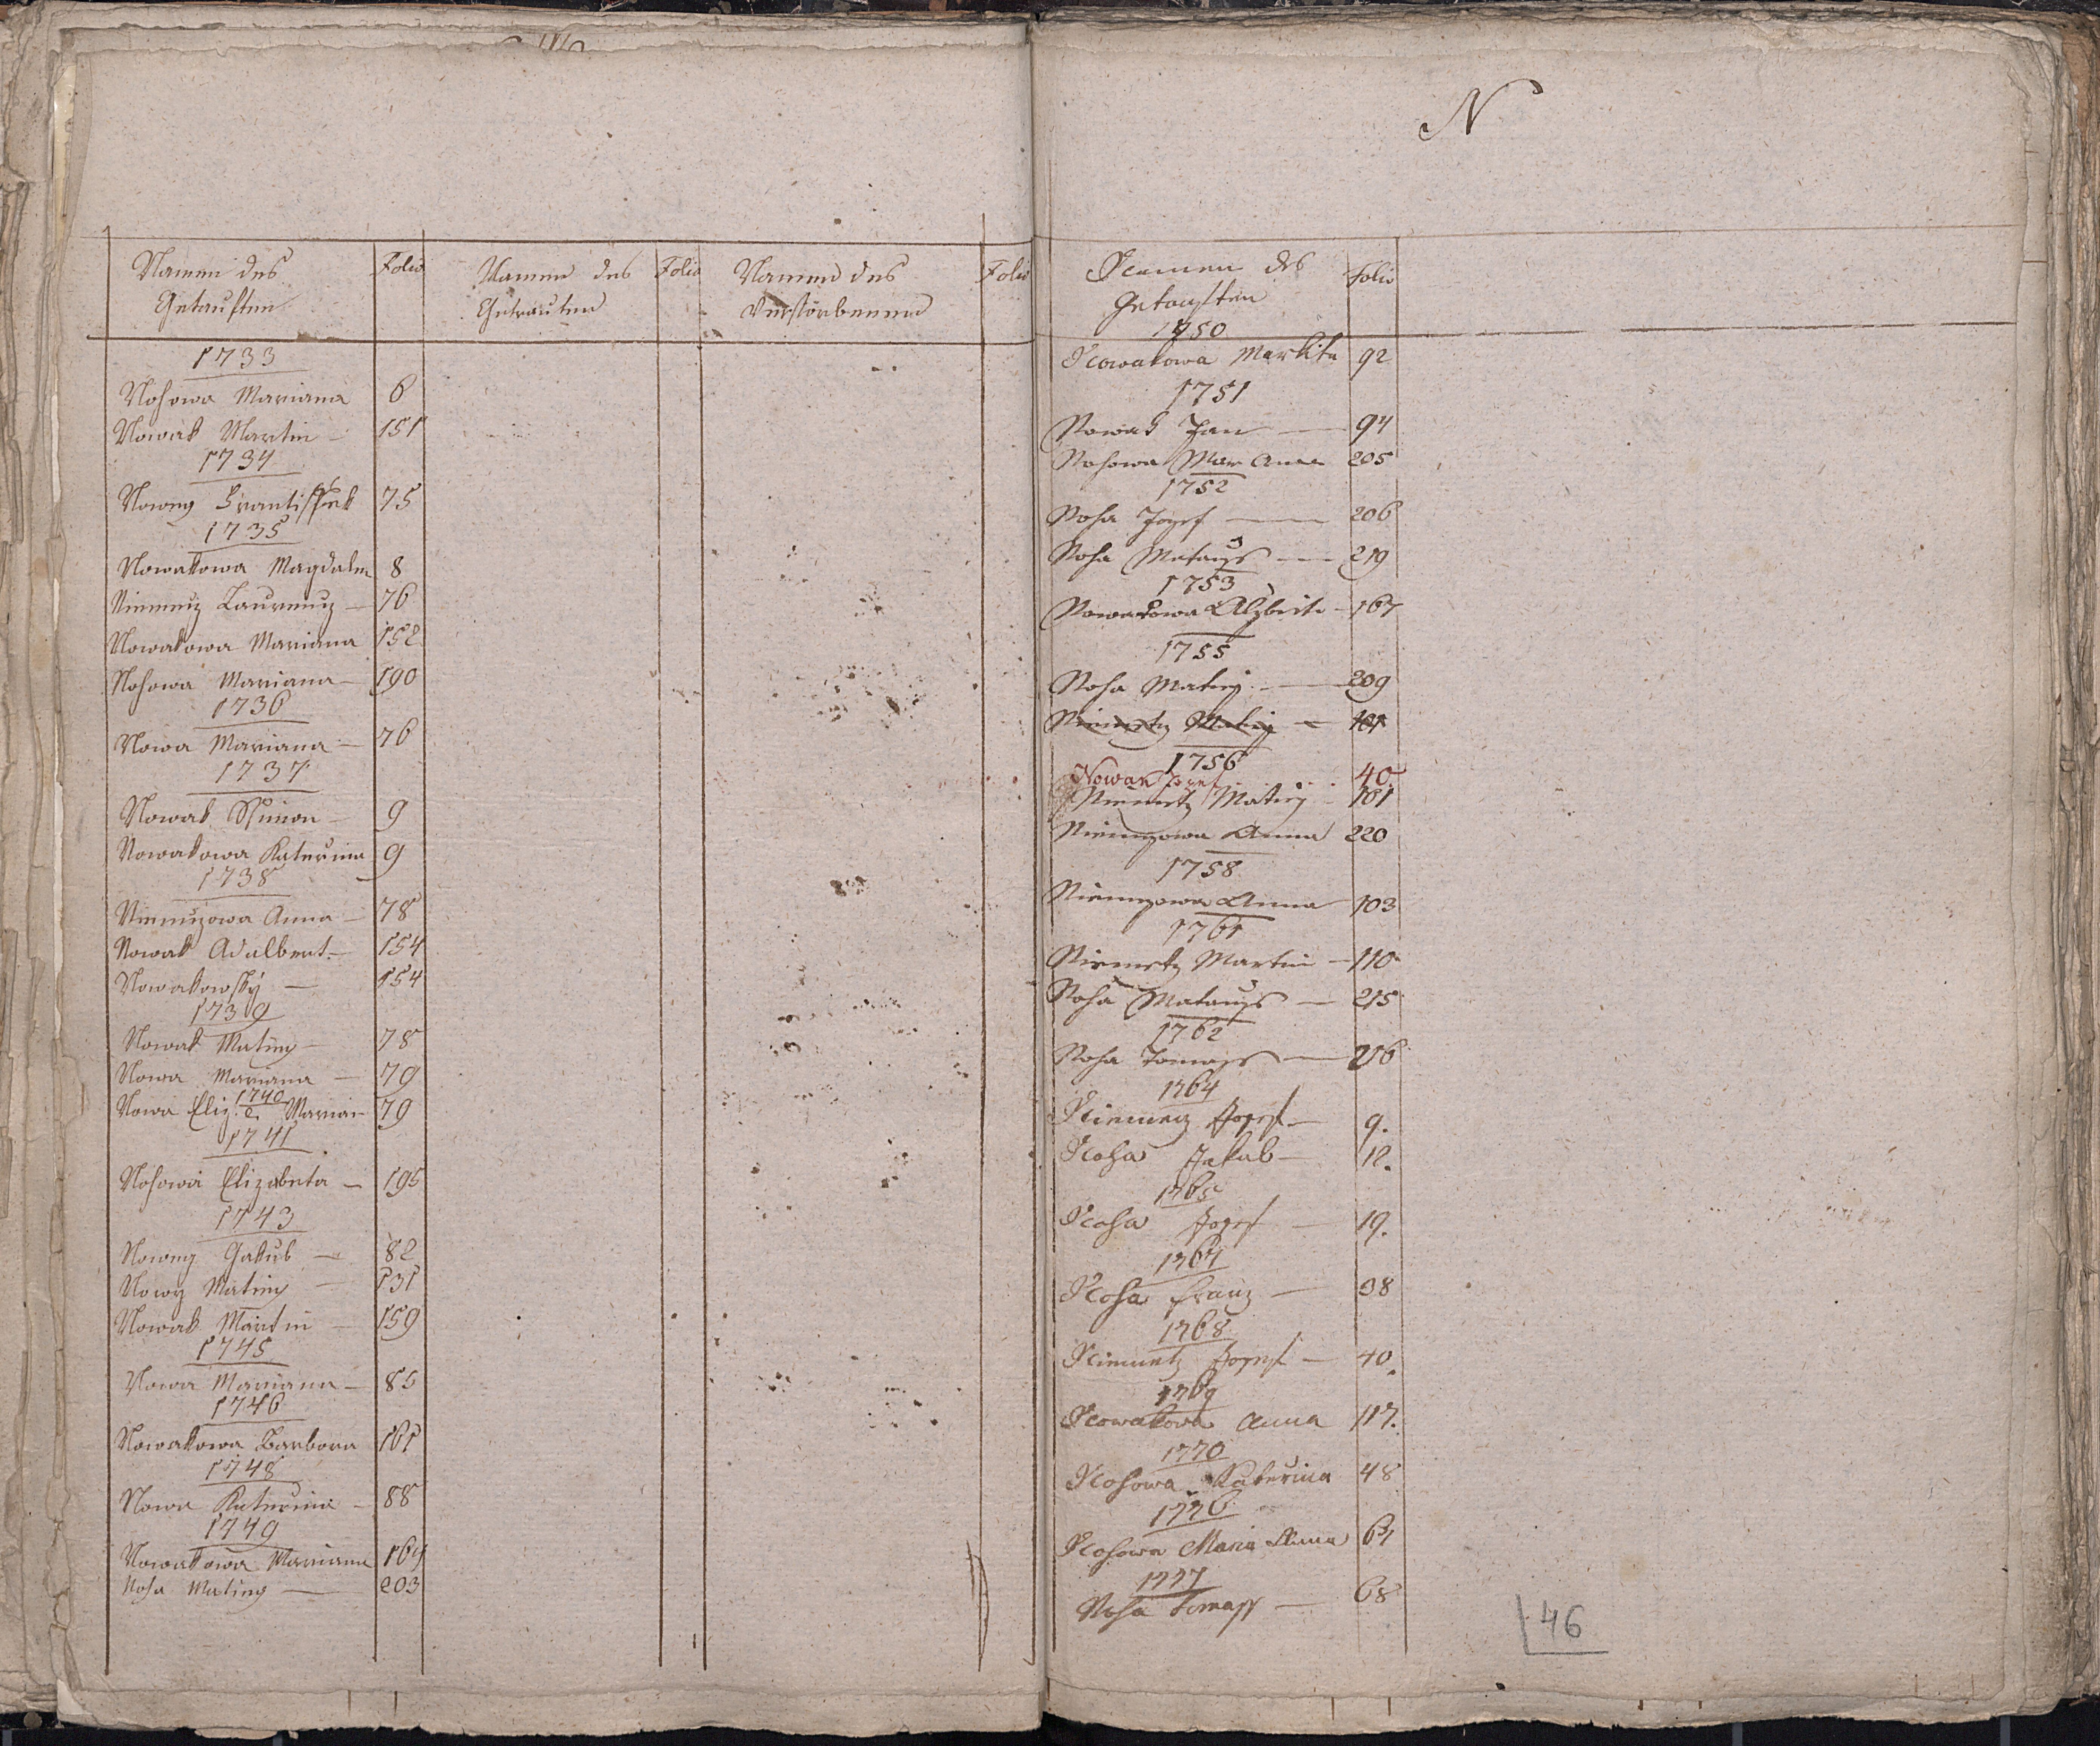 Namen des Getauften
Folio
Namen des Getrauten
Folio
Namen des Verstorbenen
Folio
1733
Nosowa Mariana 6
Nowak Martin – 151
1734
Nowey Frantissek 75
1735
Nowakowa Magdalen 8
Niemecz Laurencz – 76
Nowakowa Mariana 152
Nosowa Mariana – 190
1736
Nowa Mariana – 76
1737
Nowak Simon – 9
Nowakowa Katerina 9
1738
Niemczowa Anna – 78
Nowak Adalbert – 154
Nowakowsky – 154
1739
Nowak Matiey – 78
Nowa Mariana – 79
1740
Nowa Eliz. e Marian 79
1741
Nosowa Elizabeta – 195
1743
Nowey Jakub – 82
Nowy Matiey – 131
Nowak Martin – 159
1745
Nowa Mariana – 85
1746
Nowakowa Barbora 161
1748
Nowa Katerina – 88
1749
Nowakowa Mariana 164
Nosa Matiey – 203
N
Namen des Getauften
Folio
1750
Nowakowa Markita 92
1751
Nowak Jan – 94
Nosowa Mar Anna 205
1752
Nosa Jozef – 206
Nosa Matauss – 219
1753
Nowakowa Alzbieta – 167
1755
Nosa Matiey – 209
Niemetz Matiey – 101
1756
Nowak Josef 40.
Niemetz Matiey – 101
Niemczowa Anna 220
1758
Niemczowa Anna 103
1761
Niemetz Martin – 110
Nosa Matauss – 215
1762
Nosa Tomass – 216
1764
Niemecz Josef – 9.
Nosa Jakub – 12.
1765
Nosa Josef – 19.
1767
Nosa Franz – 38
1768
Niemetz Josef – 40.
1769
Nowakowa Anna 117.
1770
Nosowa Katerina 48
1776
Nosowa Maria Anna 64
1777
Nosa Tomass – 68
46